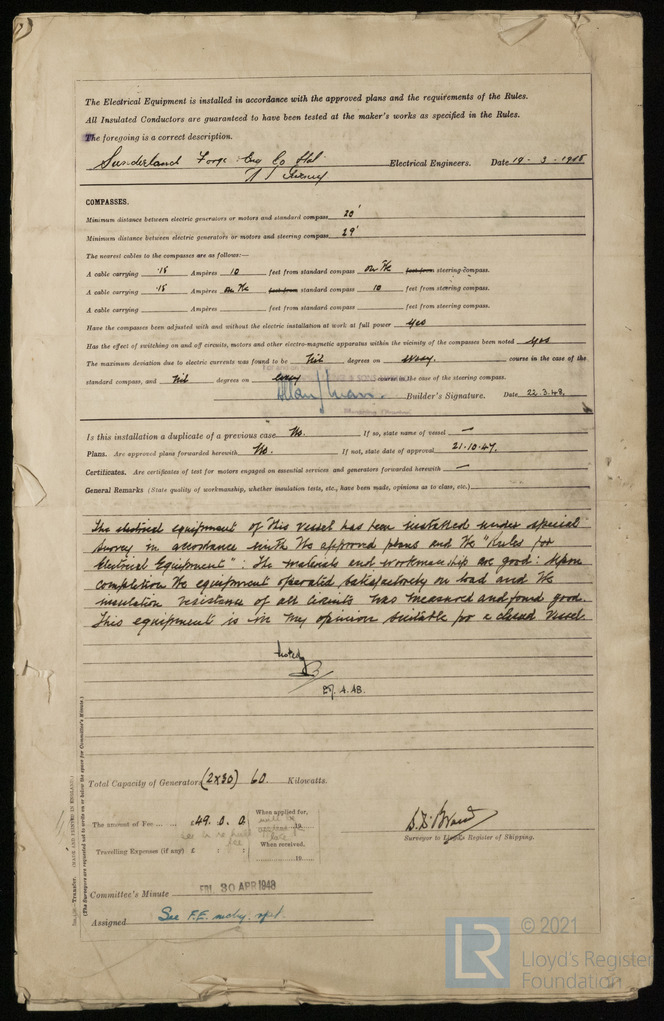 The Electrical Equipment is installed in accordance with the approved plans and the requirements of the Rules.
All Insulated Conductors are guaranteed to have been tested at the maker's works as specified in the Rules.
The foregoing is a correct description.
Sunderland Forge Eng Co Ltd.
Electrical Engineers. Date 19 - 3 - 1948
COMPASSES.
Minimum distance between electric generators or motors and standard compass 20'
Minimum distance between electric generators or motors and steering compass 29'
The nearest cables to the compasses are as follows:—
A cable carrying .15 Ampères 10 feet from standard compass on the feet from steering compass.
A cable carrying .15 Ampères on the feet from standard compass 10 feet from steering compass.
A cable carrying Ampères feet from standard compass feet from steering compass.
Have the compasses been adjusted with and without the electric installation at work at full power yes
Has the effect of switching on and off circuits, motors and other electro-magnetic apparatus within the vicinity of the compasses been noted yes
The maximum deviation due to electric currents was found to be Nil degrees on every course in the case of the
standard compass, and Nil degrees on every course in the case of the steering compass.
Builder's Signature. Date 22.3.48.
Is this installation a duplicate of a previous case No. If so, state name of vessel —
Plans. Are approved plans forwarded herewith No. If not, state date of approval 21.10.47.
Certificates. Are certificates of test for motors engaged on essential services and generators forwarded herewith —
General Remarks (State quality of workmanship, whether insulation tests, etc., have been made, opinions as to class, etc.)
The electrical equipment of this vessel has been installed under special
survey in accordance with the approved plans and the "Rules for
Electrical Equipment": The materials and workmanship are good: Upon
completion the equipment operated satisfactorily on load and the
insulation resistance of all circuits was measured and found good.
This equipment is in my opinion suitable for a classed vessel.
Noted
27.4.48.
Total Capacity of Generators (2x30) 60. Kilowatts.
The amount of Fee ... ... £49. 0. 0.
When applied for,
19
Travelling Expenses (if any) £ : :
When received,
19
Surveyor to Lloyd's Register of Shipping.
Committee's Minute FRI. 30 APR 1948
Assigned See F.E. mchy. rpt.
Transfer. (MADE AND PRINTED IN ENGLAND.)
(The Surveyors are requested not to write on or below the space for Committee's Minute.)
LR
© 2021
Lloyd's Register
Foundation